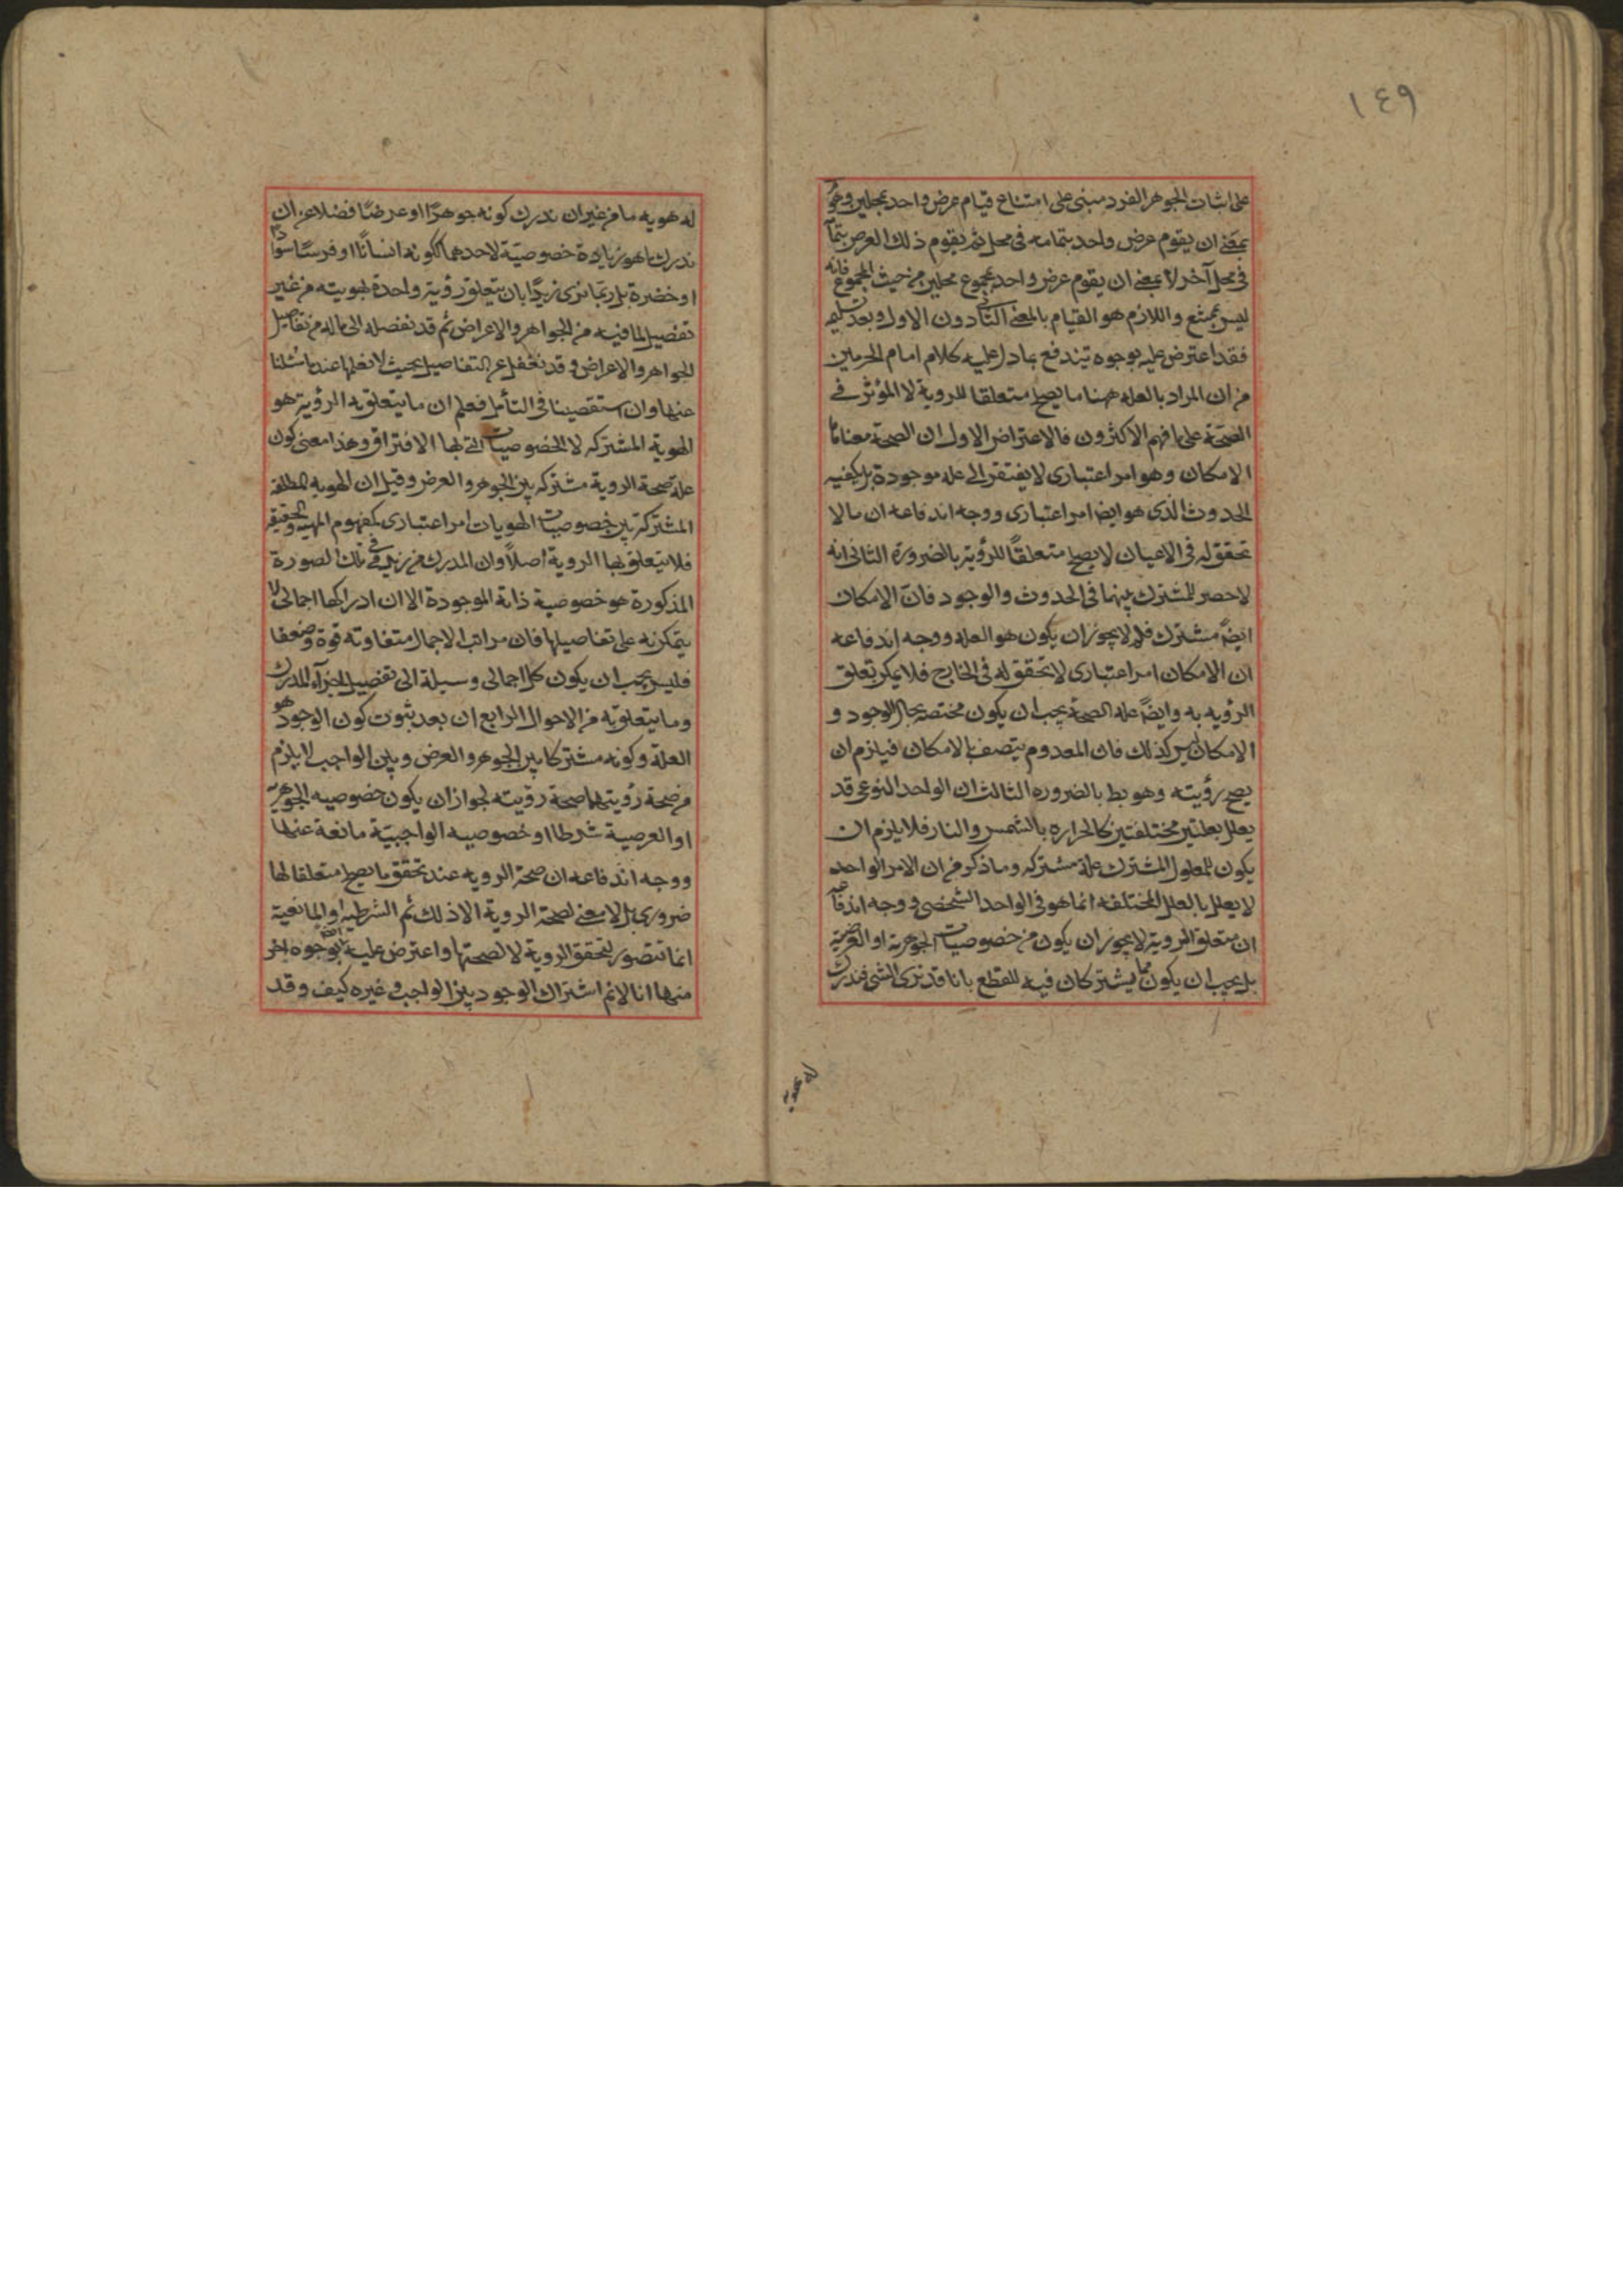 ١٤٩
على اثبات الجوهر الفرد مبنى على امتناع قيام عرض واحد بمحلين وهو
بمعنى ان يقوم عرض واحد بتمامه فى محل ثم يقوم ذلك العرض بتمامه
فى محل آخر لا بمعنى ان يقوم عرض واحد بمجموع محلين من حيث المجموع فانه
ليس بممتنع واللازم هو القيام بالمعنى الثانى دون الاول وبعد تسليمه
فقد اعترض عليه بوجوه تندفع بما دل عليه كلام امام الحرمين
من ان المراد بالعله ههنا ما يصلح متعلقا للروية لا المؤثر فى
الصحة على ما فهم الاكثرون فالاعتراض الاول ان الصحة معناها
الامكان وهو امر اعتبارى لا يفتقر الى علة موجودة بل يكفيه
الحدوث الذى هو ايضا امر اعتبارى ووجه اندفاعه ان ما لا
تحقق له فى الاعيان لا يصلح متعلقًا للرؤية بالضرورة الثانى انه
لا حصر للمشترك بينهما فى الحدوث والوجود فان الامكان
ايضًا مشترك فلم لا يجوز ان يكون هو العله ووجه اندفاعه
ان الامكان امر اعتبارى لا تحقق له فى الخارج فلا يمكن تعلق
الرؤيه به وايضًا علة الصحة يجب ان يكون مختصة بحال الوجود و
الامكان ليس كذلك فان المعدوم يتصف بالامكان فيلزم ان
يصح رؤيته وهو بط بالضروره الثالث ان الواحد النوعى قد
يعلل بعلتين مختلفتين كالحراره بالشمس والنار فلا يلزم ان
يكون للمعلول المشترك علة مشتركه وما ذكر من ان الامر الواحد
لا يعلل بالعلل المختلفه انما هو فى الواحد الشخصى ووجه اندفاعه
ان متعلق الروية لا يجوز ان يكون من خصوصيات الجوهرية او العرضية
بل يجب ان يكون مما يشتركان فيه للقطع بانا قد نرى الشى فندرك
له هويه
له هويه ما من غير ان ندرك كونه جوهرًا او عرضًا فضلا عن ان
ندرك ما هو زيادة خصوصية لاحدهما ككونه انسانًا او فرسًا سوادا
او خضرة بل ربما نرى زيدًا بان يتعلق رؤية واحدة بهويته من غير
تفصيل لما فيه من الجواهر والاعراض ثم قد نفصله الى ما له من تفاصيل
الجواهر والاعراض وقد نغفل عن التفاصيل بحيث لا نعلمها عند ما سئلنا
عنها وان استقصينا فى التأمل فعلم ان ما يتعلق به الرؤية هو
الهوية المشتركه لا الخصوصيات التى بها الافتراق وهذا معنى كون
علة صحة الروية مشتركه بين الجوهر والعرض وقيل ان الهويه المطلقه
المشتركة بين خصوصيات الهويات امر اعتبارى كمفهوم المهية والحقيقه
فلا يتعلق بها الروية اصلًا وان المدرك من زيد فى تلك الصورة
المذكورة هو خصوصية ذاته الموجودة الا ان ادراكها اجمالى لا
يتمكن به على تفاصيلها فان مراتب الاجمال متفاوته قوة وضعفا
فليس يجب ان يكون كل اجمالى وسيلة الى تفصيل اجزاء المدرك
وما يتعلق به من الاحوال الرابع ان بعد ثبوت كون الوجود هو
العلة وكونه مشتركا بين الجوهر والعرض وبين الواجب لا يلزم
من صحة رؤيتهما صحة رؤيته لجواز ان يكون خصوصيه الجوهرية
او العرضية شرطا او خصوصيه الواجبيّة مانعة عنها
ووجه اندفاعه ان صحة الرويه عند تحقق ما يصلح متعلقا لها
ضرورى بل لا معنى لصحة الروية الا ذلك ثم الشرطية او المانعية
انما تتصور لتحقق الروية لا لصحتها واعترض عليه ايضا بوجوه اخر
منها انا لانم اشتراك الوجود بين الواجب وغيره كيف وقد